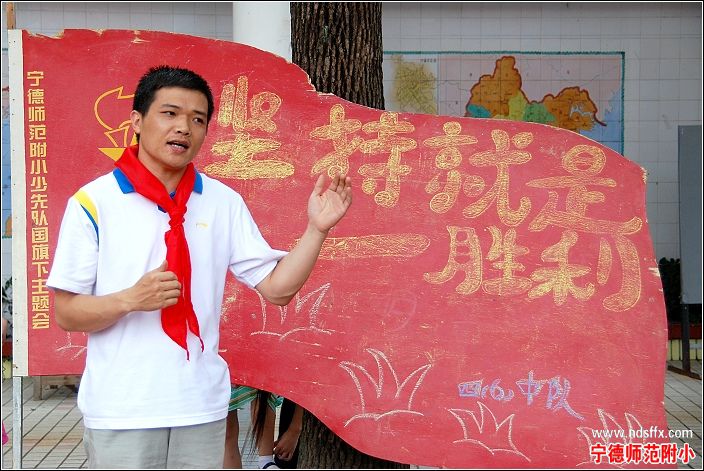 宁德师范附小少先队国旗下主题会
坚持就是
胜利
四(6)中队
www.ndsffx.com
宁德师范附小